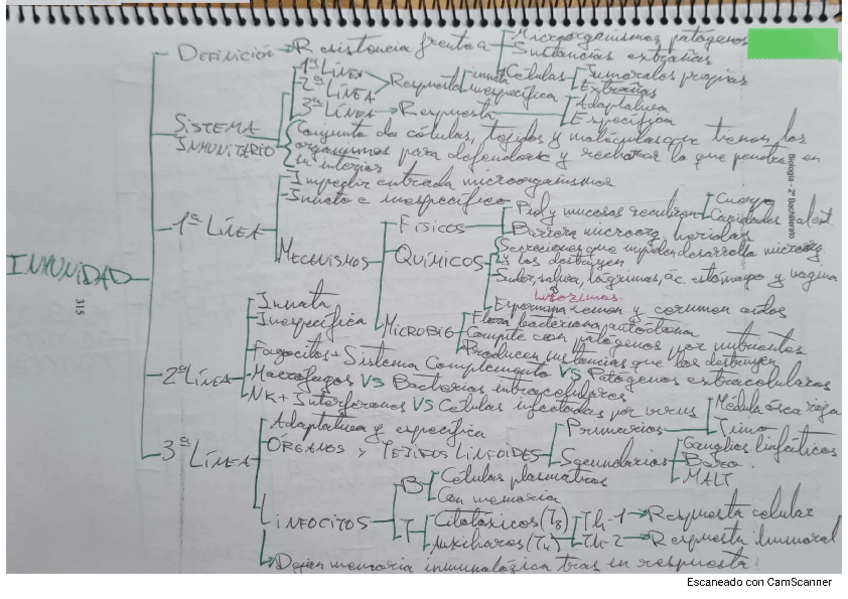 INMUNIDAD
DEFINICIÓN → Resistencia frente a
Microorganismos patógenos
Sustancias extrañas
Células
Tumorales propias
Extrañas
SISTEMA INMUNITARIO
1ª LÍNEA
2ª LÍNEA
Respuesta innata inespecífica
3ª LÍNEA → Respuesta
Adaptativa
Específica
Conjunto de células, tejidos y moléculas que tienen los
organismos para defenderse y rechazar lo que penetra en
su interior
1ª LÍNEA
Impedir entrada microorganismos
Innata e inespecífica
MECANISMOS
FÍSICOS
Piel y mucosas recubren
Cuerpo
Cavidades
Barrera microorg. nocivos
QUÍMICOS
Secreciones que impiden desarrollo microorg.
y los destruyen
Sudor, saliva, lágrimas, ác. estómago y vagina
Lisozimas
Espermina semen y cerumen oídos
MICROBIO
Flora bacteriana autóctona
Compite con patógenos por nutrientes
Producen sustancias que los destruyen
2ª LÍNEA
Innata
Inespecífica
Fagocitos + Sistema Complemento VS Patógenos extracelulares
Macrófagos VS Bacterias intracelulares
NK + Interferones VS Células infectadas por virus
3ª LÍNEA
Adaptativa y específica
ÓRGANOS Y TEJIDOS LINFOIDES
Primarios
Médula ósea roja
Timo
Secundarios
Ganglios linfáticos
Bazo
MALT
LINFOCITOS
B
Células plasmáticas
Con memoria
T
Citotóxicos (T8)
Auxiliares (T4)
Th-1 → Respuesta celular
Th-2 → Respuesta humoral
Dejan memoria inmunológica tras su respuesta
Biología - 2º Bachillerato
315
Escaneado con CamScanner